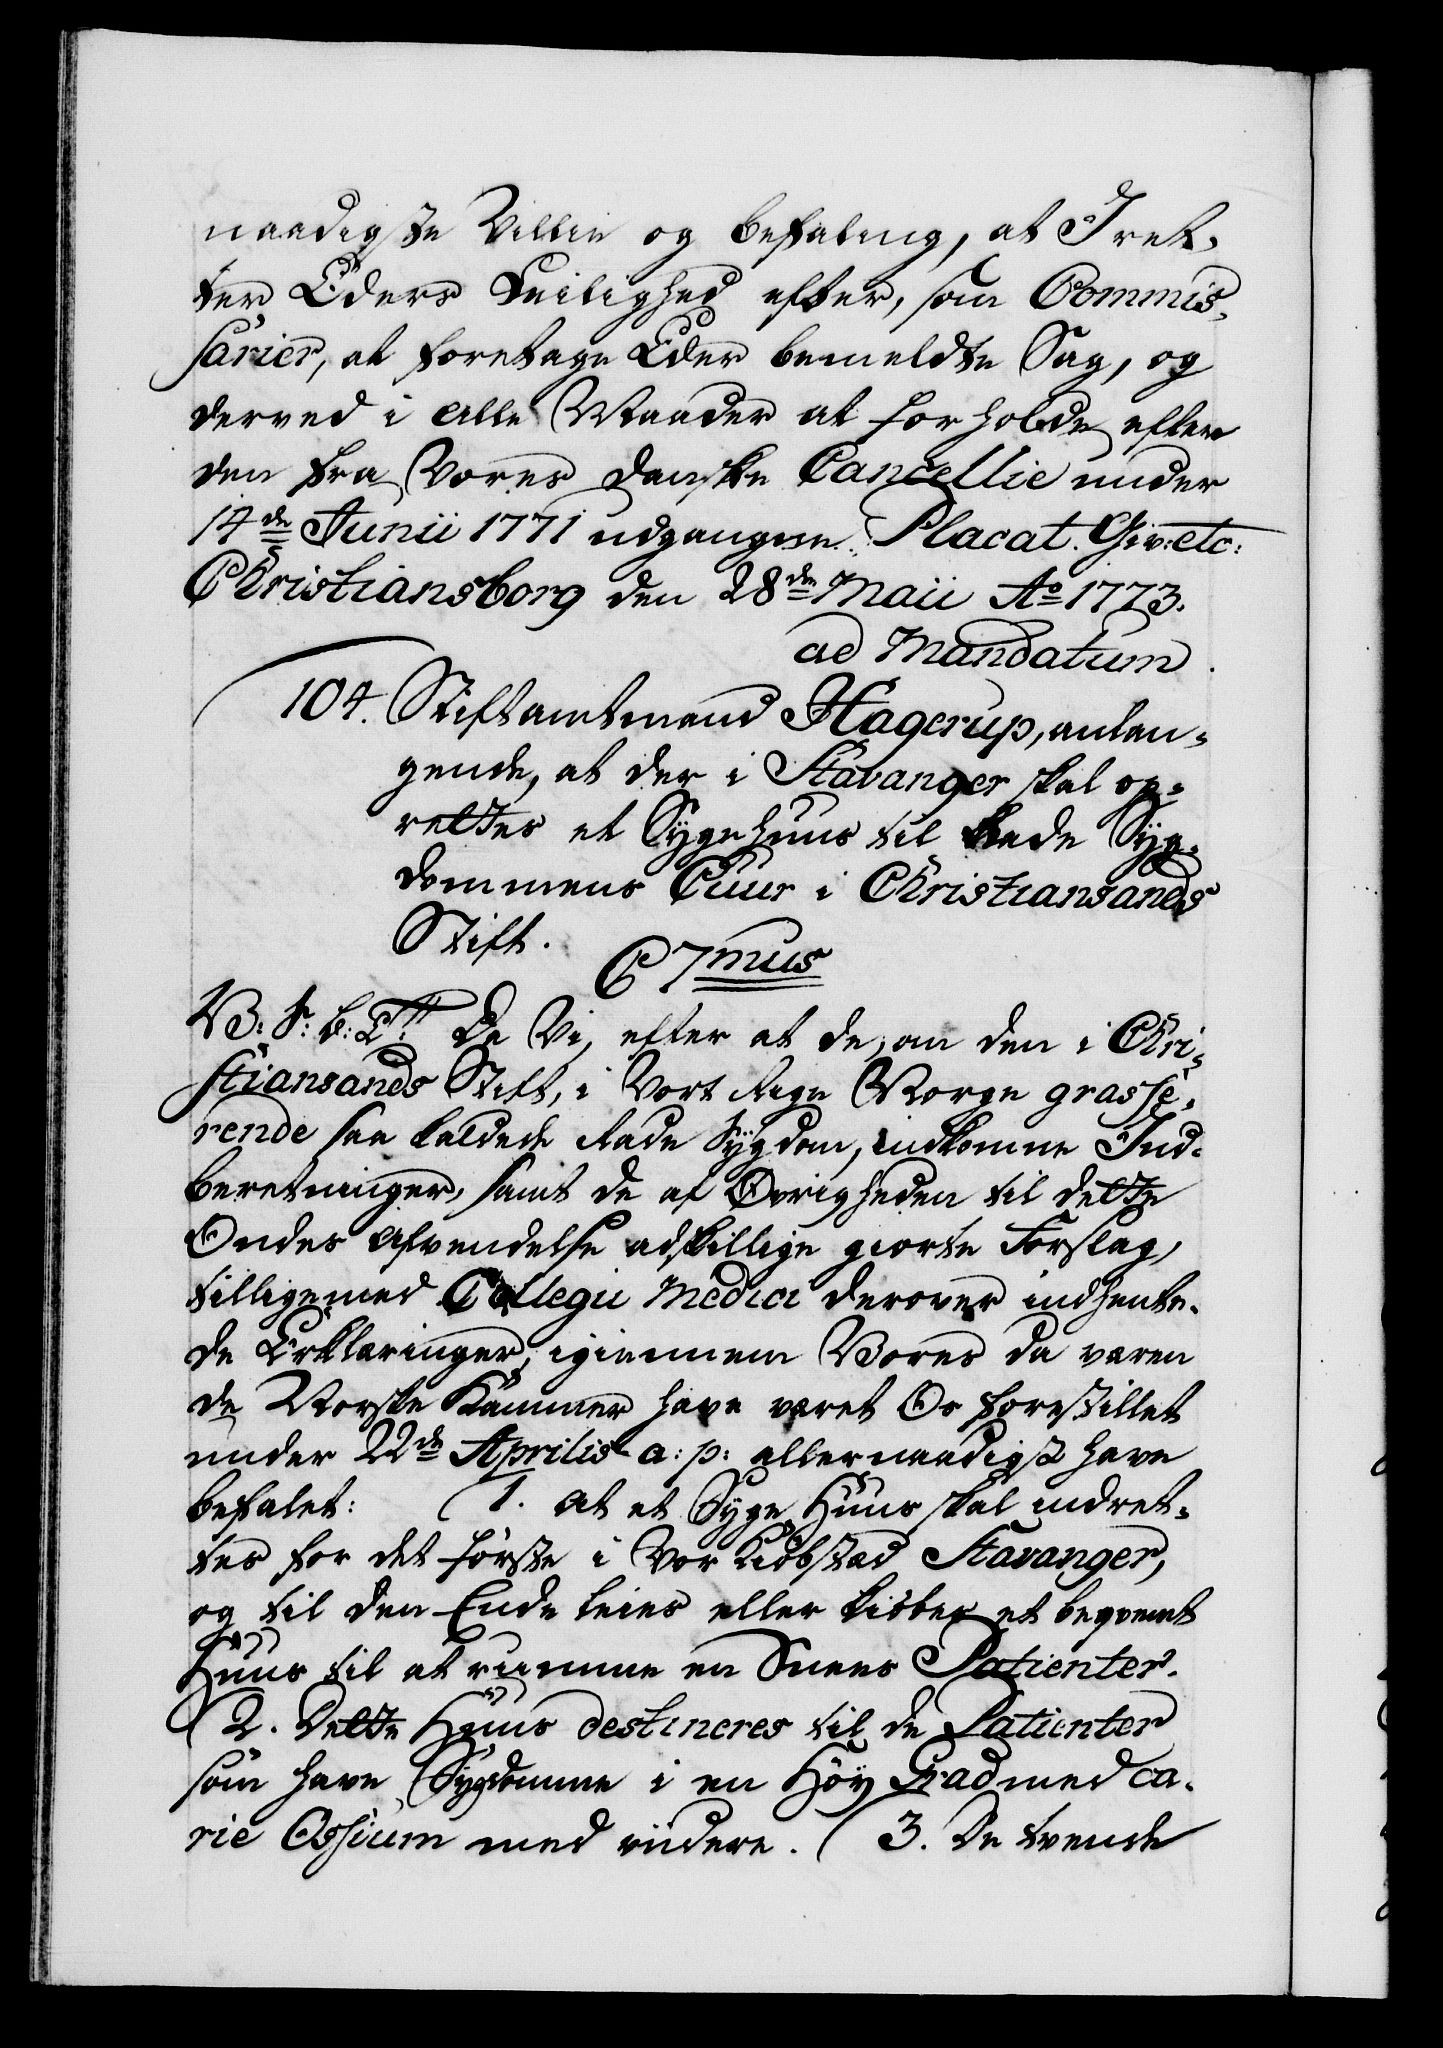 naadigste Villie og befaling, at I ret-
ter Eders Leilighed efter, som Commis-
sarier, at foretage Eder bemeldte Sag, og
derved i alle Maader at forholde efter
den fra Vores danske Cancellie under
14de Junii 1771 udgangne Placat. Giv: etc:
Christiansborg den 28de Maii Ao 1773.
ad Mandatum
104. Stiftamtmand Hagerup, anlan-
gende, at der i Stavanger skal op-
rettes et Sygehuus til Rade Syg-
dommens Cuur i Christiansands
Stift.
C 7mus
V: S: b: T: Da Vi, efter at de, om den i Chri-
stiansands Stift, i Vort Rige Norge grasse-
rende saa kaldede Rade Sygdom, indkomne Ind-
beretninger, samt de af Øvrigheden til dette
Ondes Afvendelse adskillige giorte Forslag,
tilligemed Collegii Medici derover indhente-
de Erklæringer, igiennem Vores da væren
de Norske Kammer have været Os forestillet
under 22de Aprilis a: p: allernaadigst have
befalet: (1. at et Syge Huus skal indret-
tes for det første i Vor Kiøbstad Stavanger,
og til den Ende leies eller kiøbes et beqvemt
Huus til at rumme en Snees Patienter.
(2. Dette Huus destineres til de Patienter
som have Sygdomme i en Høy Grad med Ca-
rie Ossium med videre. (3. De tvende